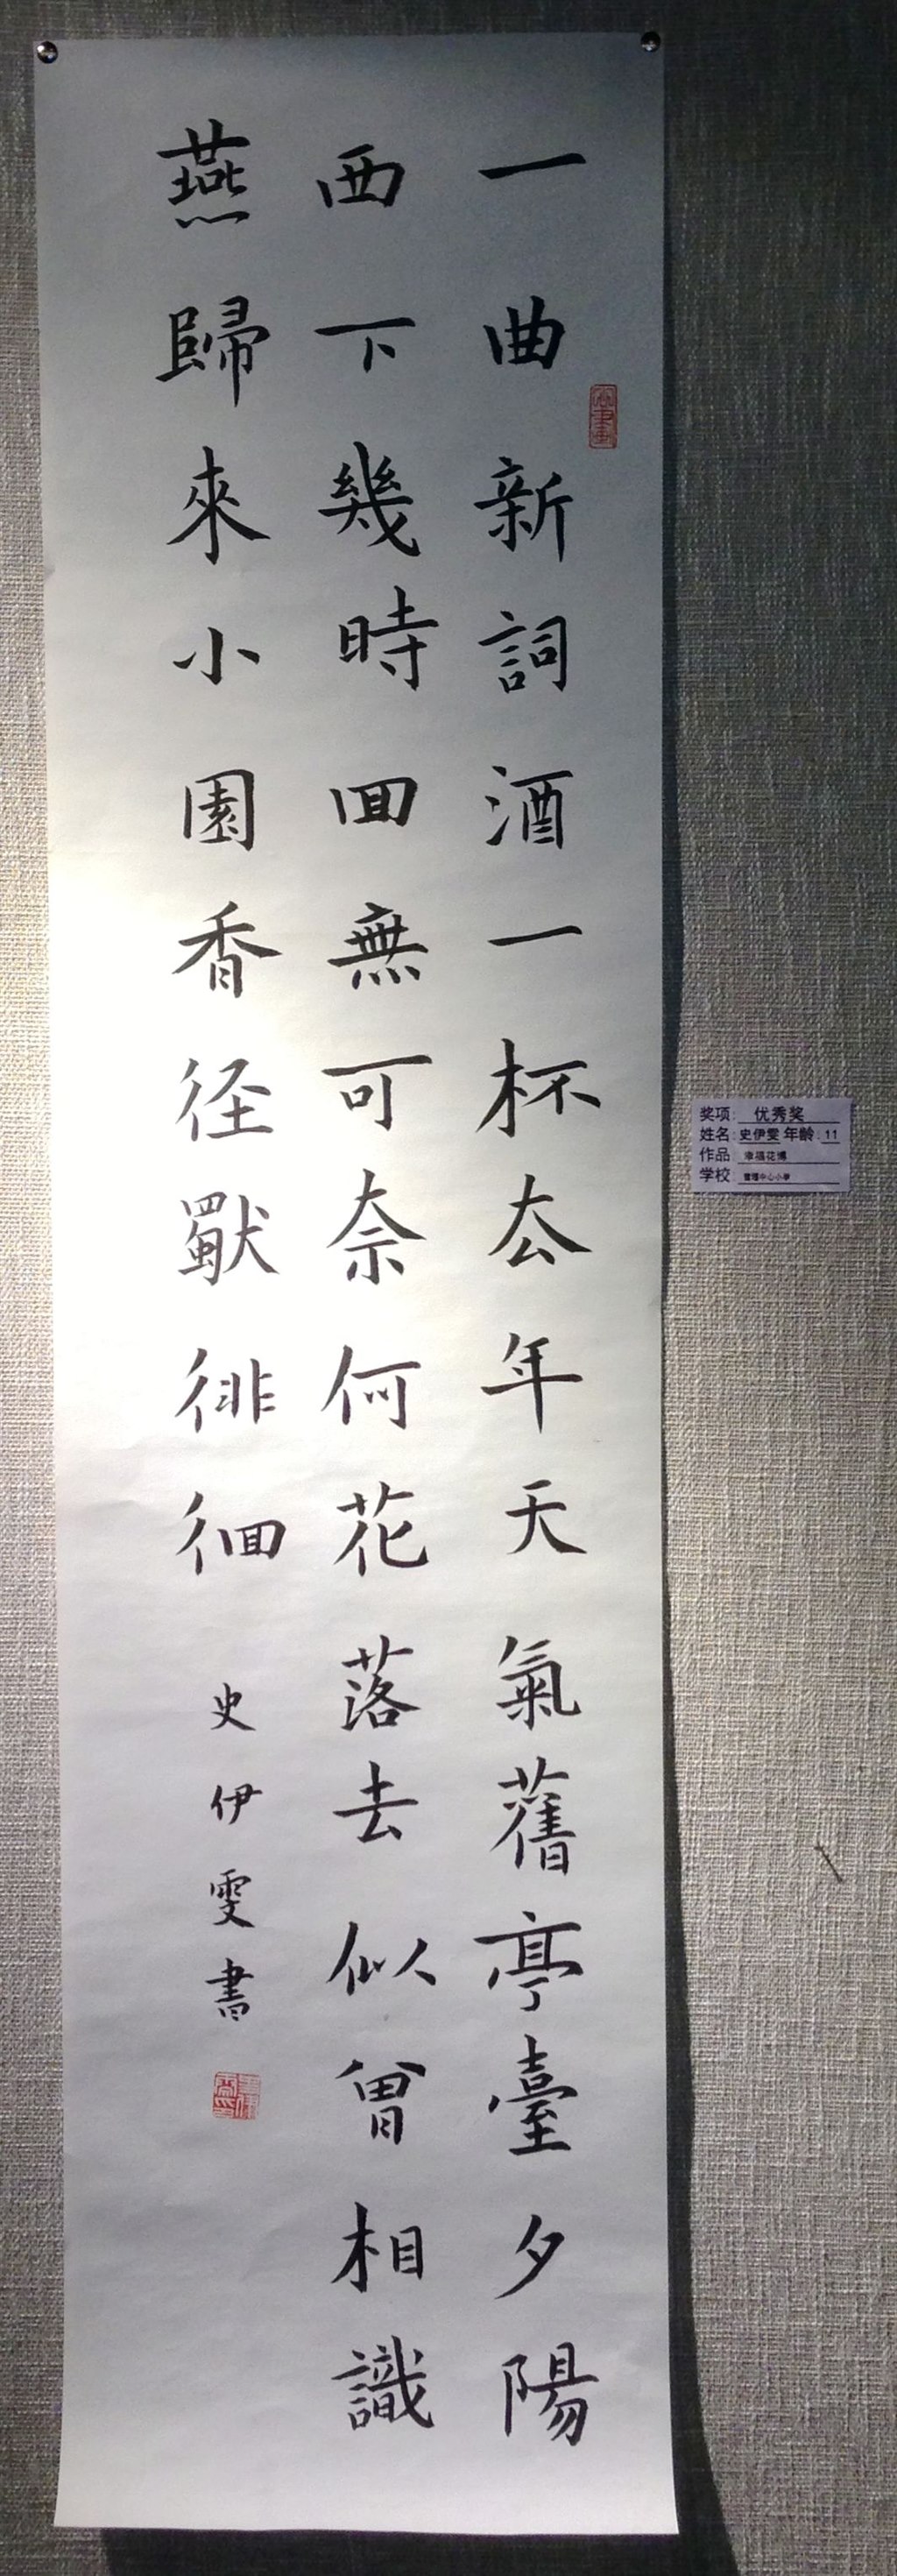 一曲新詞酒一杯厺年天氣舊亭臺夕陽
西下幾時回無可奈何花落去似曾相識
燕歸來小園香径獨徘徊
史伊雯書
奖项: 优秀奖
姓名: 史伊雯 年龄: 11
作品 幸福花博
学校 中心小学